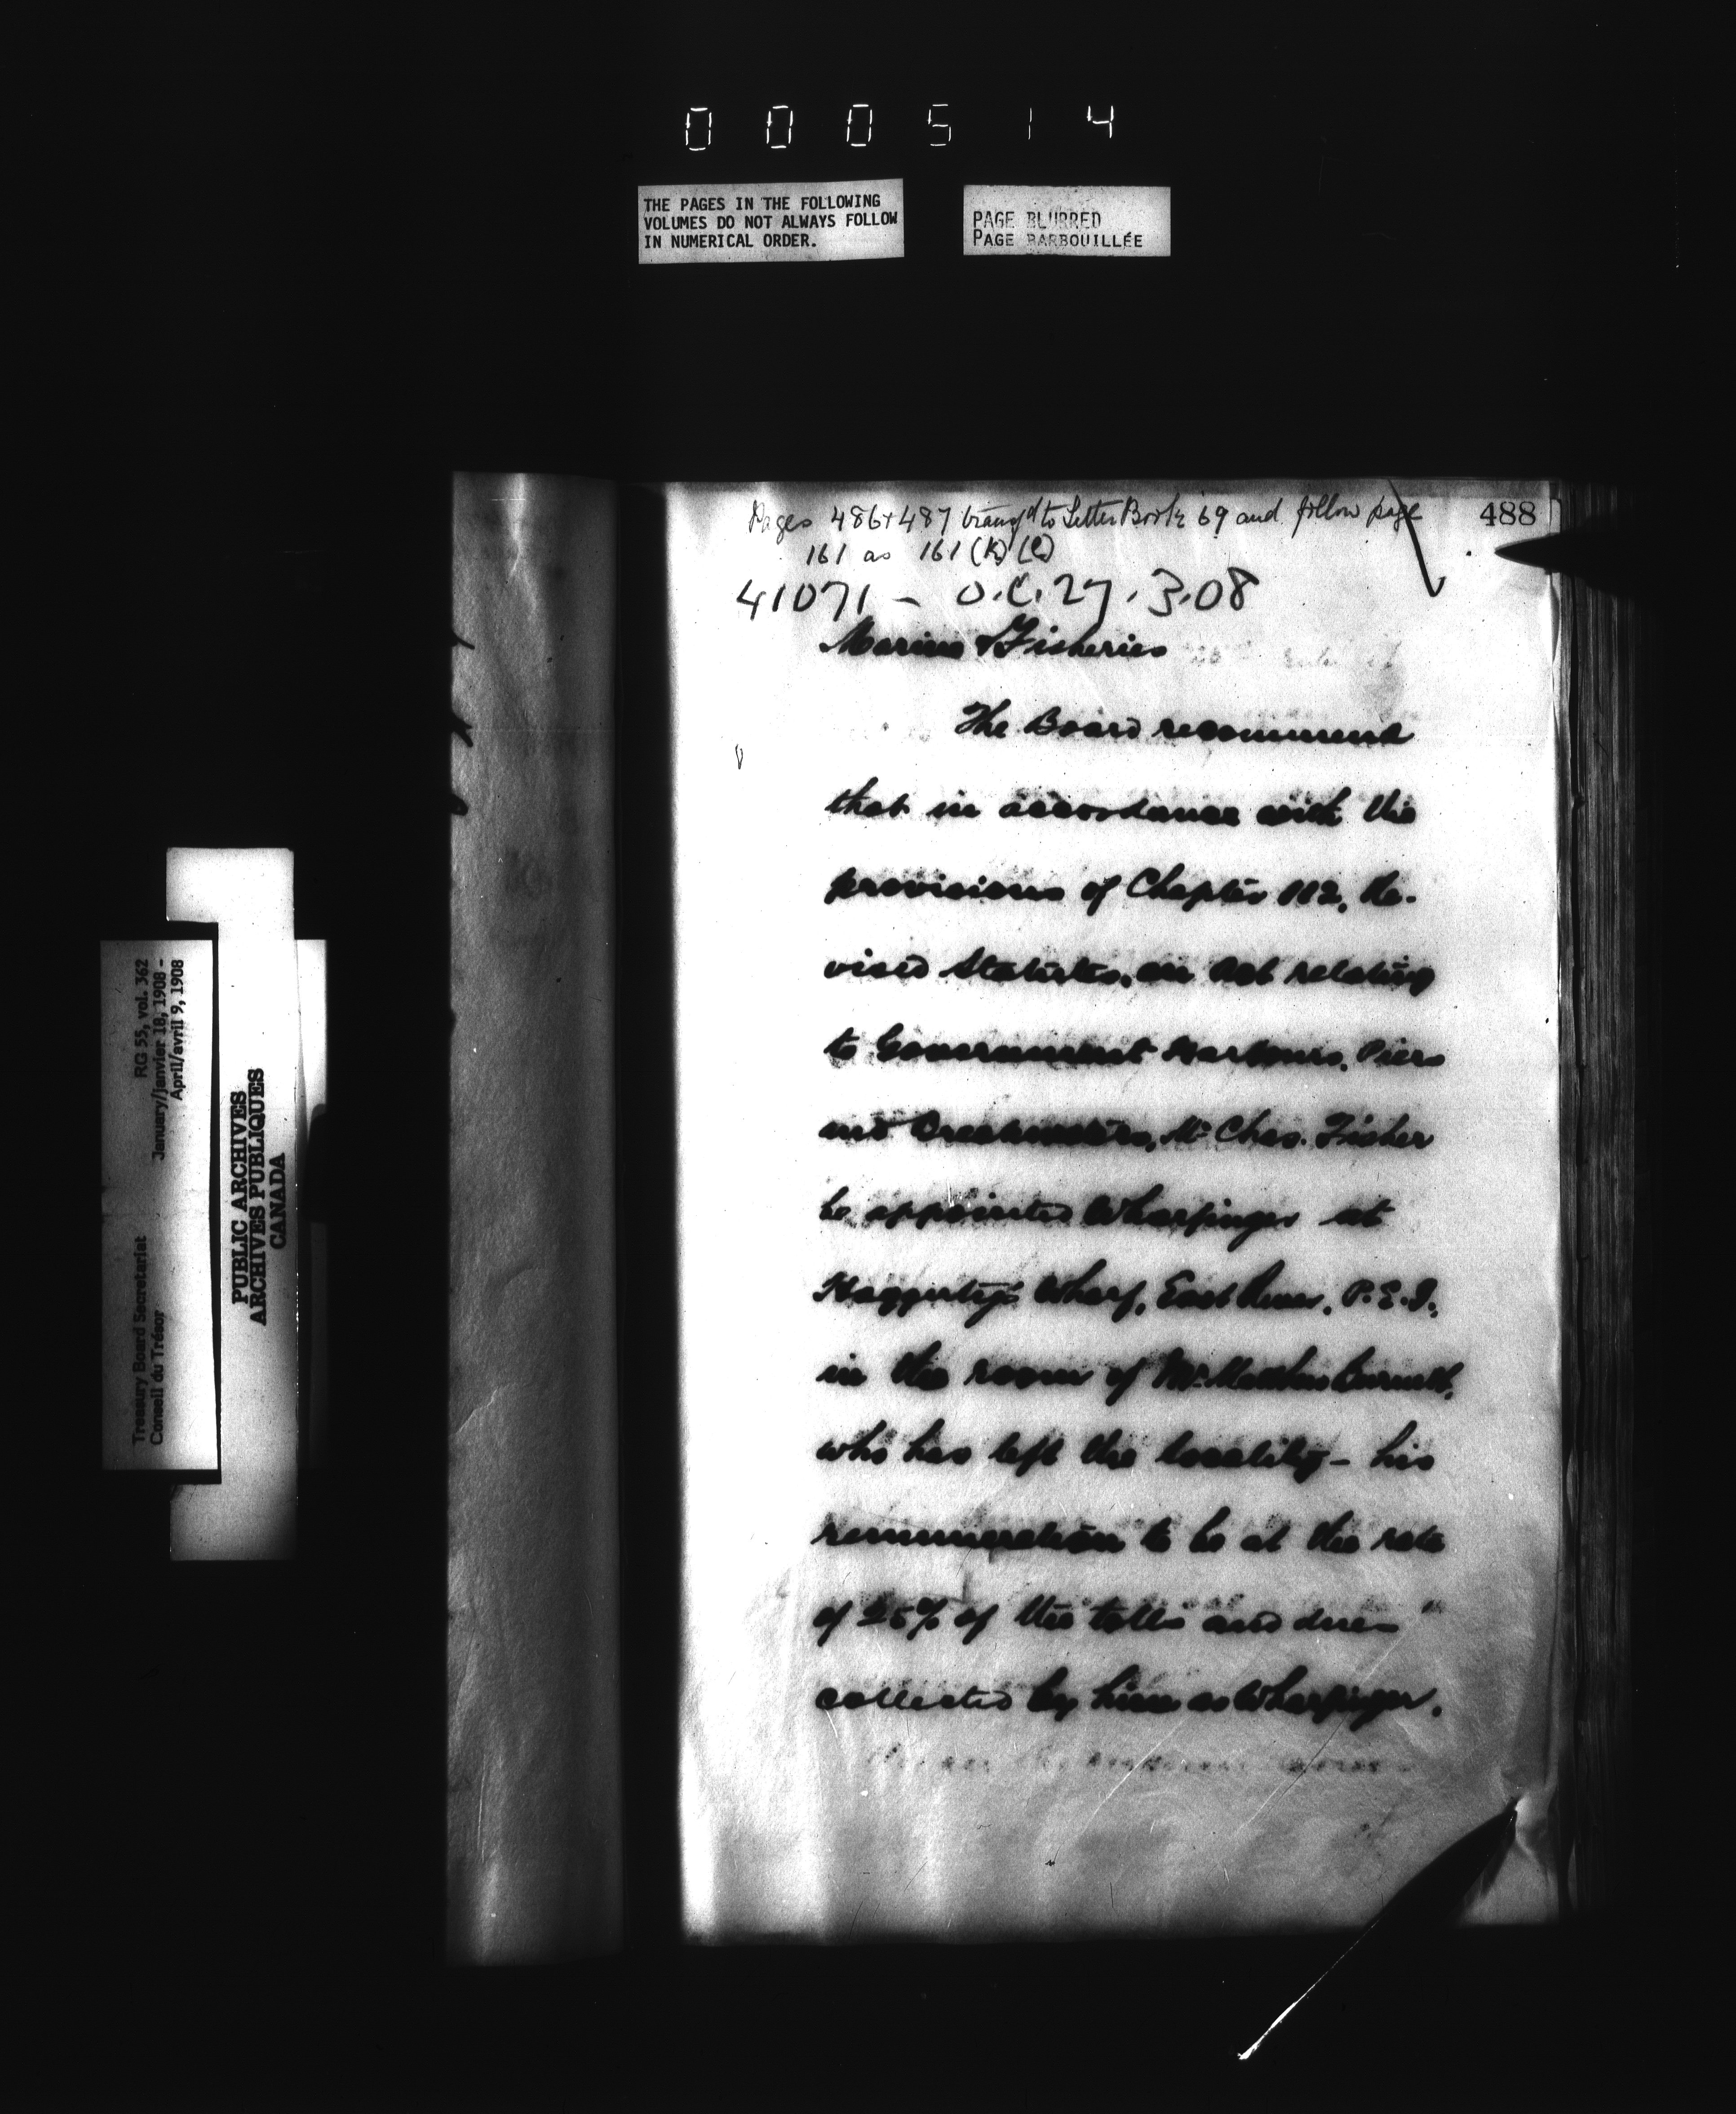 000514
THE PAGES IN THE FOLLOWING
VOLUMES DO NOT ALWAYS FOLLOW
IN NUMERICAL ORDER.
PAGE BLURRED
PAGE BARBOUILLÉE
488
Pages 486+487 transfd to Letter Book 69 and follow page
161 as 161 (K) (L)
41071 - O.C. 27.3.08
Marine & Fisheries
The Board recommend
that in accordance with the
provisions of Chapter 112, Re-
vised Statutes, an Act relating
to Government Harbours, Piers
and Breakwaters, Mr Chas. Fisher
be appointed Wharfinger at
Haggerty's Wharf, East River, P.E.I.,
in the room of Mr. Matthew Burnett,
who has left the locality - his
remuneration to be at the rate
of 25% of the tolls and dues
collected by him as Wharfinger.
Treasury Board Secretariat
Conseil du Trésor
RG 55, vol. 362
January/janvier 18, 1908 -
April/avril 9, 1908
PUBLIC ARCHIVES
ARCHIVES PUBLIQUES
CANADA